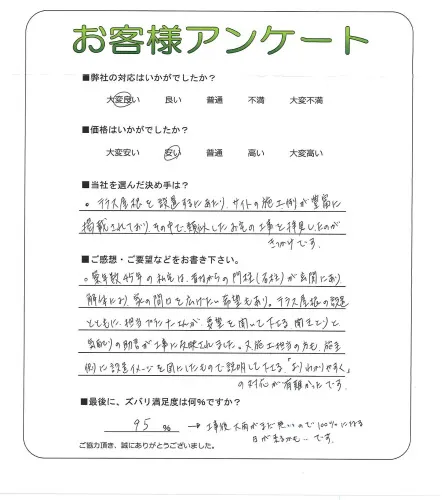 お客様アンケート
■弊社の対応はいかがでしたか?
大変良い 良い 普通 不満 大変不満
■価格はいかがでしたか?
大変安い 安い 普通 高い 大変高い
■当社を選んだ決め手は?
。テラス屋根を設置するにあたり、サイトの施工例が豊富に
掲載されており、その中で、類似したお宅の工事を拝見したのが
きっかけです。
■ご感想・ご要望などをお書き下さい。
。築年数45年の私宅は、昔ながらの門柱(石柱)が玄関にあり
解体により家の間口を広げたい希望もあり。テラス屋根の設置
とともに、担当プランナーさんが、要望を聞いて下さる
の助言が工事に反映されました。又施工担当の方も、施主
側に設置イメージを図にしたもので説明して下さる、「よりわかりやすく」
の対応が有難かったです。
■最後に、ズバリ満足度は何%ですか?
95 % → 工事後大雨がまだ無いので100%になる
日が来るかも…です。
ご協力頂き、誠にありがとうございました。